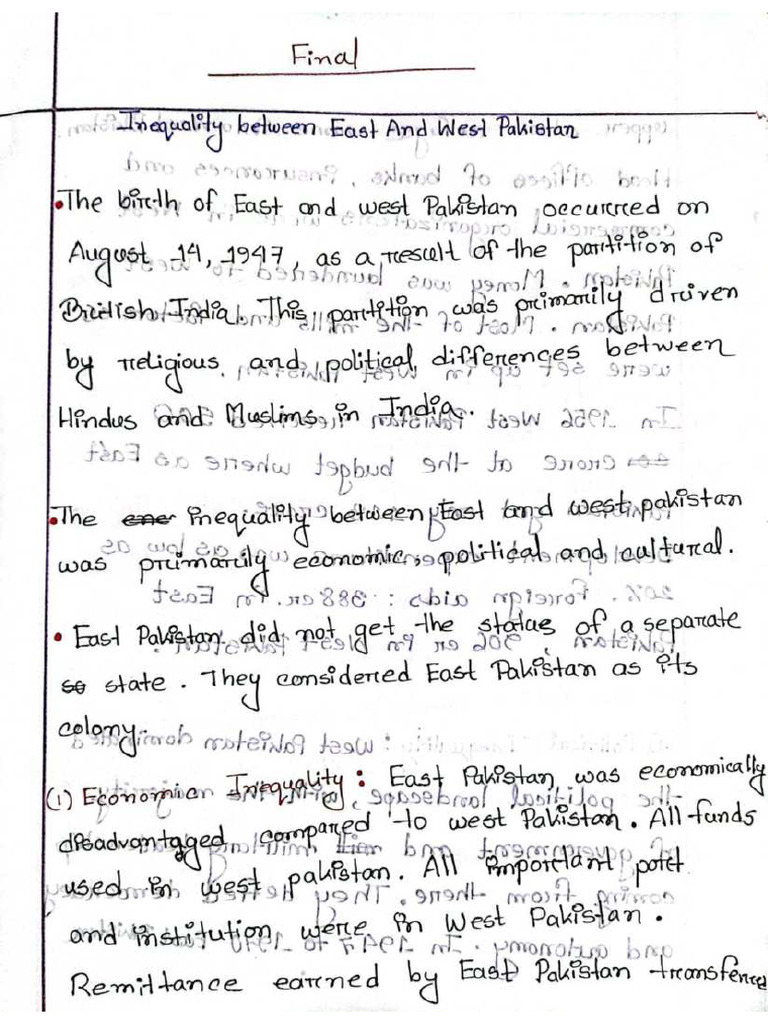 Final
Inequality between East And West Pakistan
•The birth of East and west Pakistan occurred on
August 14, 1947, as a result of the partition of
British India. This partition was primarily driven
by religious and political differences between
Hindus and Muslims in India.
•The inequality between East and west pakistan
was primarily economic, political and cultural.
• East Pakistan did not get the status of a separate
state. They considered East Pakistan as its
colony.
(1) Economic Inequality: East Pakistan was economically
disadvantaged compared to west Pakistan. All funds
used in west pakistan. All important port
and institution were in West Pakistan.
Remittance earned by East Pakistan transfered